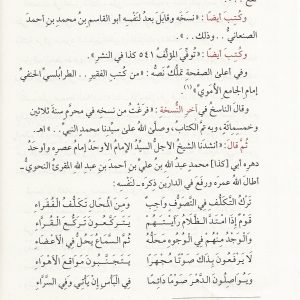 وكُتِبَ أيضًا : « نسَخَه وقابل بعدُ لنفْسِه أبو القاسم بنُ محمدِ بنِ أحمدَ
الصنعانيُّ .. وذلك .. ».
وكُتِبَ أيضًا : « تُوفِّيَ المؤلِّفُ ٥٤١ كذا في النشرِ ».
وفي أعلى الصفحة تملُّكٌ نَصُّه : « من كُتبِ الفقيرِ .. الطرابلسيِّ الحنفيِّ
إمامِ الجامعِ الأُمَويِّ »(١)
وقال الناسخُ في آخرِ النُّسخةِ : « فرَغْتُ من نسخِه في محرَّمٍ سنةَ ثلاثين
وخمسِمائةٍ، وبه تمَّ الكتابُ، وصلَّى اللهُ على سيِّدِنا محمدٍ النبيِّ .. » اهـ.
ثُمَّ قال : « أنشدَنا الشيخُ الأجلُّ السيِّدُ الإمامُ الأوحدُ إمامُ عصرِه وأوحَدُ
دهرِه أبي [كذا] محمدٍ عبدُ اللهِ بنُ عليِّ بنِ أحمدَ بنِ عبدِ اللهِ المقرئُ النحويُّ ـ
أطال اللهُ عمرَه ورفَع في الدارين ذكرَه ـ لنفْسِه :
تَرَكُ التَّكَلُّفِ فِي التَّصَوُّفِ وَاجِبٌ وَمِنَ الْمُحَالِ تَكَلُّفُ الْفُقَرَاءِ
قَوْمٌ إِذَا امْتَدَّ الظَّلَامُ رَأَيْتَهُمْ يَتَرَكَّعُونَ تَرَكُّعَ الْقُرَّاءِ
وَالْوَجْدُ مِنْهُمْ فِي الْوُجُوهِ مَحَلُّهُ ثُمَّ السَّمَاعُ يَحُلُّ فِي الْأَعْضَاءِ
لَا يَرْفَعُونَ بِذَاكَ صَوْتًا مُجْهَرًا يَتَجَنَّبُونَ مَوَاقِعَ الْأَهْوَاءِ
وَيُوَاصِلُونَ الدَّهْرَ صَوْمًا دَائِمًا فِي الْبَأْسِ إِنْ يَأْتِي وَفِي السَّرَّاءِ